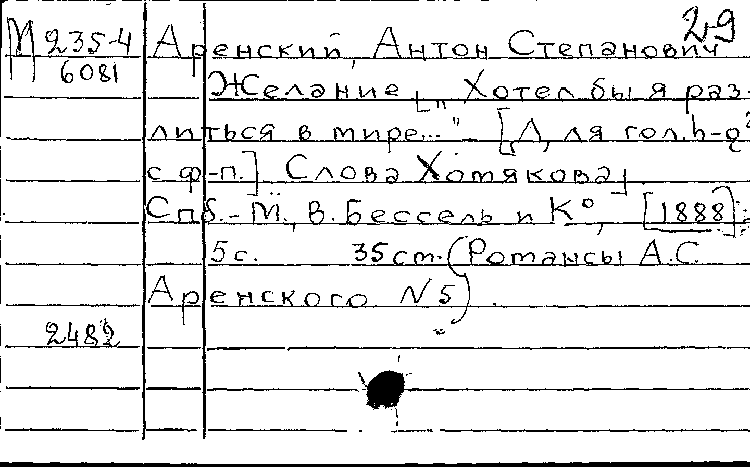 29
М 235-4 Аренский, Антон Степанович
6081 Желание „Хотел бы я раз-
литься в мире..." [Для гол. h-g²
с ф-п.] Слова Хомякова
Спб.-М., В. Бессель и К°, [1888].
5 с. 35 ст. (Романсы А.С.
Аренского N 5).
2482